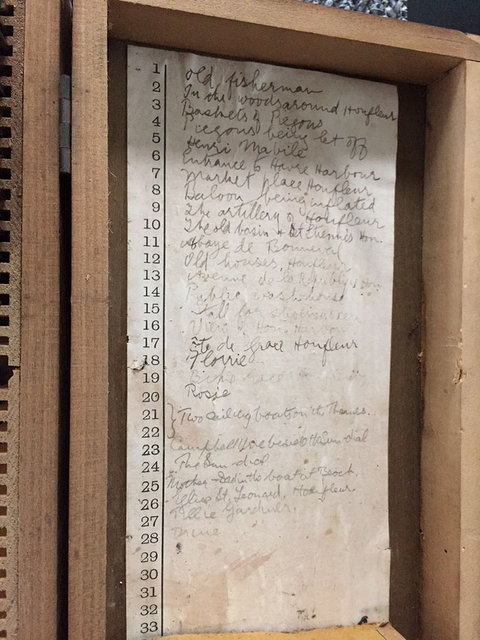 1 Old fisherman
2 In the woods around Honfleur
3 Baskets of Pegons
4 Pegons being let off
5 Henri Mabile
6 Entrance to Havre Harbour
7 Market place Honfleur
8 Baloon being inflated
9 The artillery Honfleur
10 The old basin & St Etienne's Hon.
11 Abbaye de Bonneval
12 Old houses, Honfleur
13 Avenue de la
14 Public wash house
15 Stall for
16 View of Hon. Harbour
17 Cte de Grace Honfleur
18 Florrie
19
20 Rosie
21 Two sailing boats on the Thames.
22
23 Campbell beside the Sun-dial
24 The Sun-dial
25 Mother & Dad in the boat at Beach
26 Eglise St. Leonard, Honfleur
27 Gardner
28
29
30
31
32
33